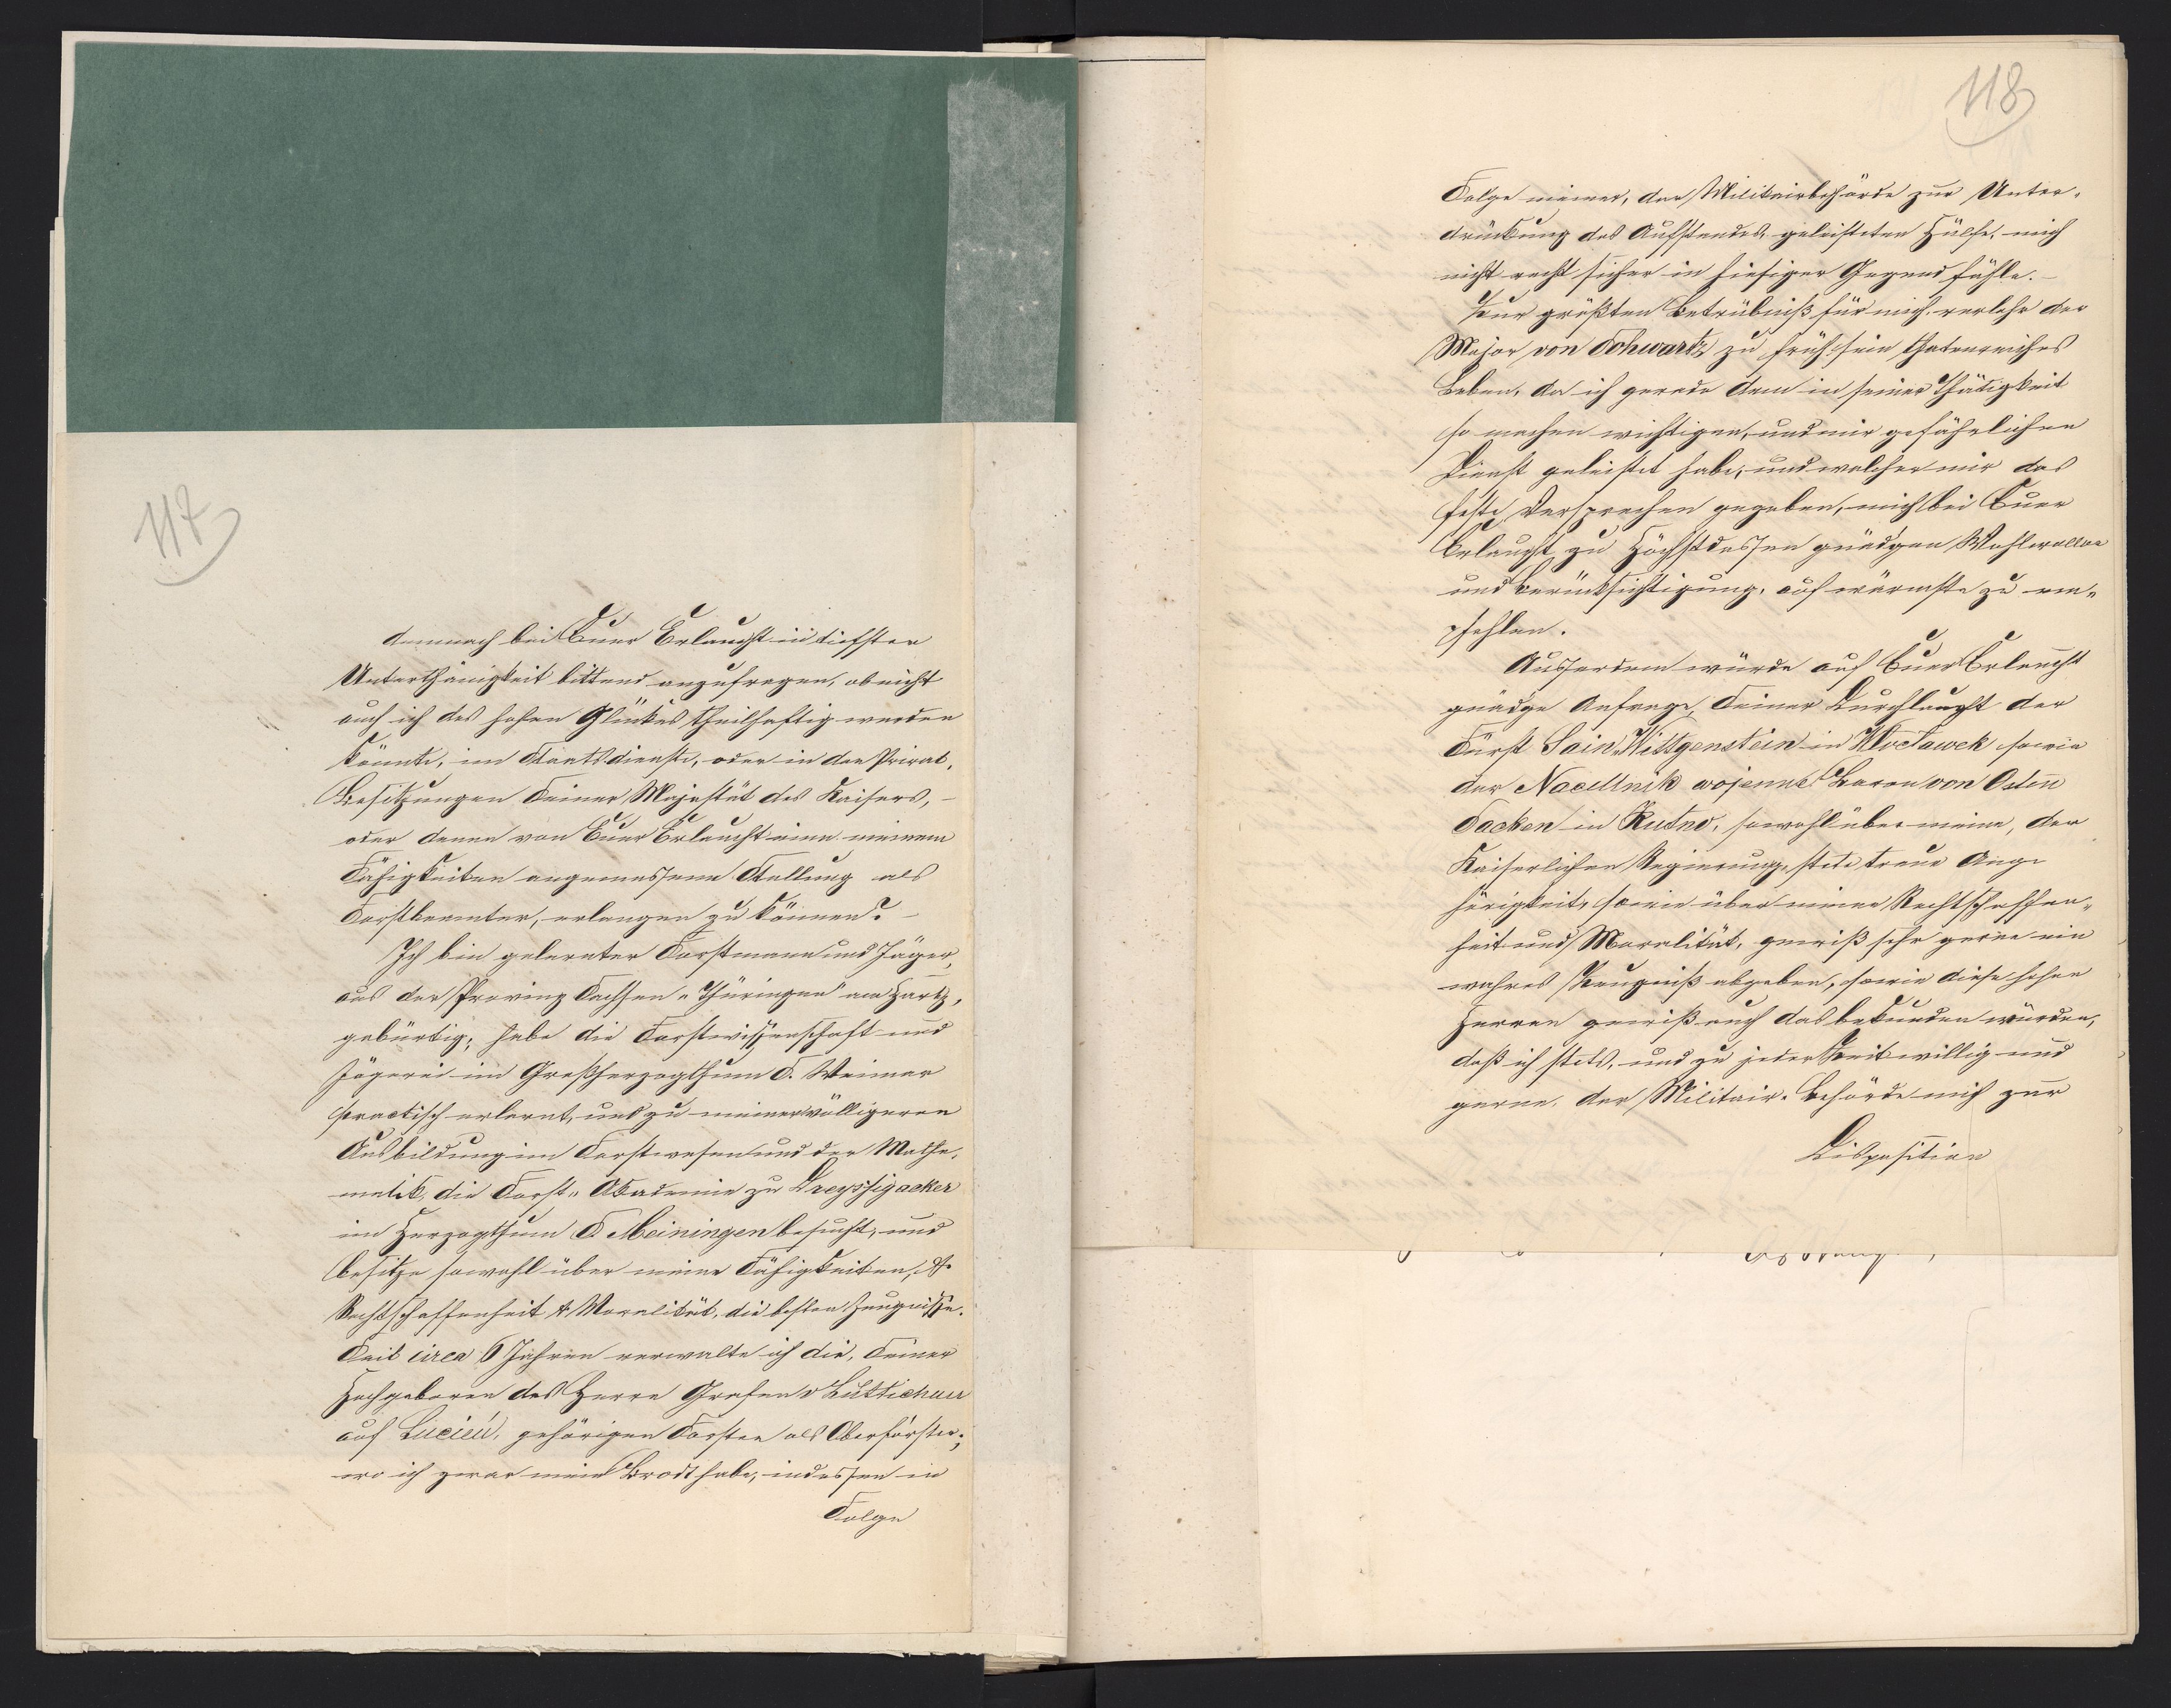 117
demnach bei Euer Erlaucht in tiefster
Unterthänigkeit bittend anzufragen, ob nicht
auch ich des hohen Glückes theilhaftig werden
könnte, im Staatsdienste, oder in den Privat-
Besitzungen Seiner Majestät des Kaisers, –
oder denen von Euer Erlaucht eine meinem
Fähigkeiten angemessene Stellung als
Forstbeamter, erlangen zu können? –
Ich bin gelernter Forstmann und Jäger,
aus der Provinz Sachsen „Thüringen" am Hartz,
gebürtig; habe die Forstwissenschaft und
Jägerei im Großherzogthum S. Weimar
practisch erlernt, und zu meiner völligeren
Ausbildung im Forstwesen und der Mathe-
matik, die Forst-Akademie zu Dreyssigacker
im Herzogthum S Meiningen besucht, und
besitze sowohl über meine Fähigkeiten, &
Rechtschaffenheit & Moralität, die besten Zeugnisse.
Seit circa 6 Jahren verwalte ich die, Seiner
Hochgeboren des Herrn Grafen v Luttichau
auf Lucień, gehörigen Forsten als Oberförster;
wo ich zwar mein Brodt habe, indessen in
Folge
118
Folge meiner, der Militairbehörde zur Unter-
drückung des Aufstandes, geleisteten Hülfe, mich
nicht recht sicher in hiesiger Gegend fühle. –
Zur größten Betrübniß für mich verlohr der
Major von Schwartz zu früh sein thatenreiches
Leben, da ich gerade dem in seiner Thätigkeit
so manchen wichtigen, und mir gefährlichen
Dienst geleistet habe, und welcher mir das
feste Versprechen gegeben, mich bei Euer
Erlaucht zu Höchstdessen gnädgen Wohlwollen
und Berücksichtigung, auf wärmste zu em-
pfehlen.
Ausserdem würde auf Euer Erlaucht
gnädge Anfrage, Seiner Durchlaucht der
Fürst Sain Wittgenstein in Włocławek sowie
der Naczelnik wojenne Baron von Osten
Sacken in Kutno, sowohl über meine, der
Kaiserlichen Regierung, stets treue Ange
hörigkeit, sowie über meine Rechtschaffen-
heit und Moralität, gewiß sehr gerne ein
wahres Zeugniß abgeben, sowie diese hohen
Herren gewiß auch das bekunden würden,
daß ich stets, und zu jeder Zeit willig und
gerne, der Militair-Behörde mich zur
Disposition